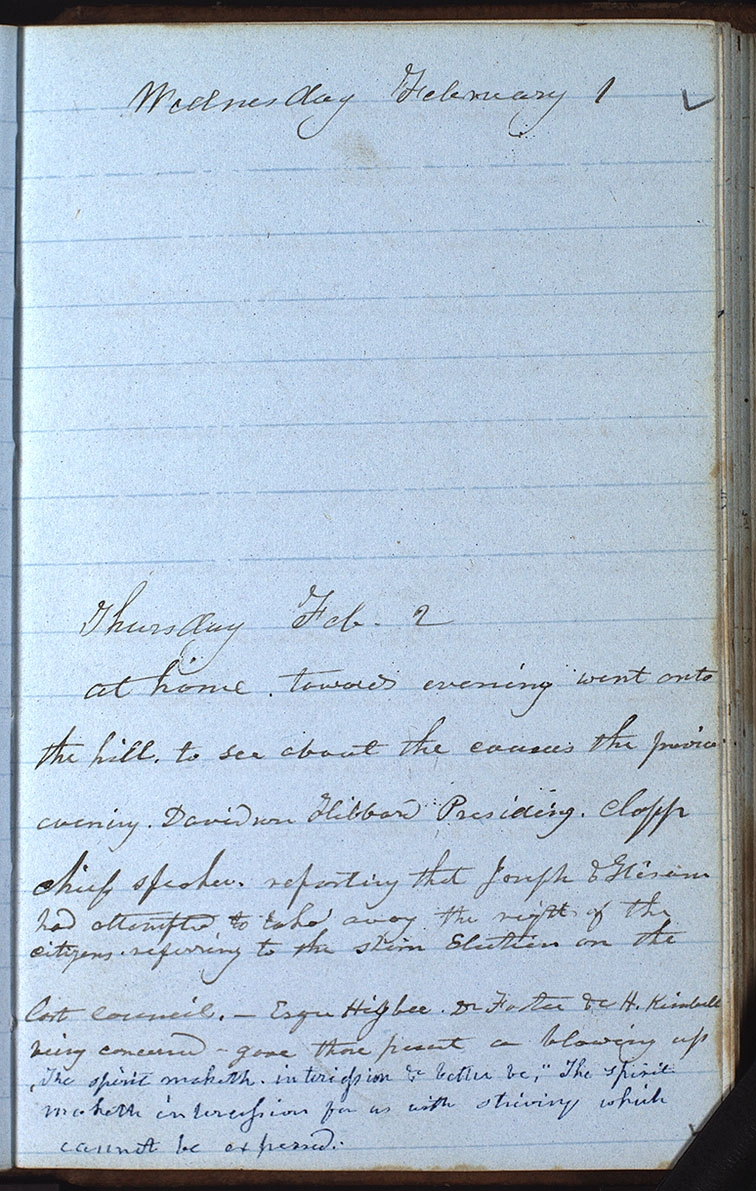 Wednesday February 1
Thursday Feb. 2
at home. towards evening went onto
the hill. to see about the caucus the previou
evening. Davidson Hibbard Presiding. Clapp
chief speaker. reporting that Joseph & Hiram
had attempted to take away the rights of the
citizens. referring to the Election on the
last council. — Esqr Higbee. Dr Foster & H. Kimball
being concerned — gave those presnt a blowing up
"The spirit maketh. intercission & better be," The spirit
maketh intercession for us with striving which
cannot be expressed.